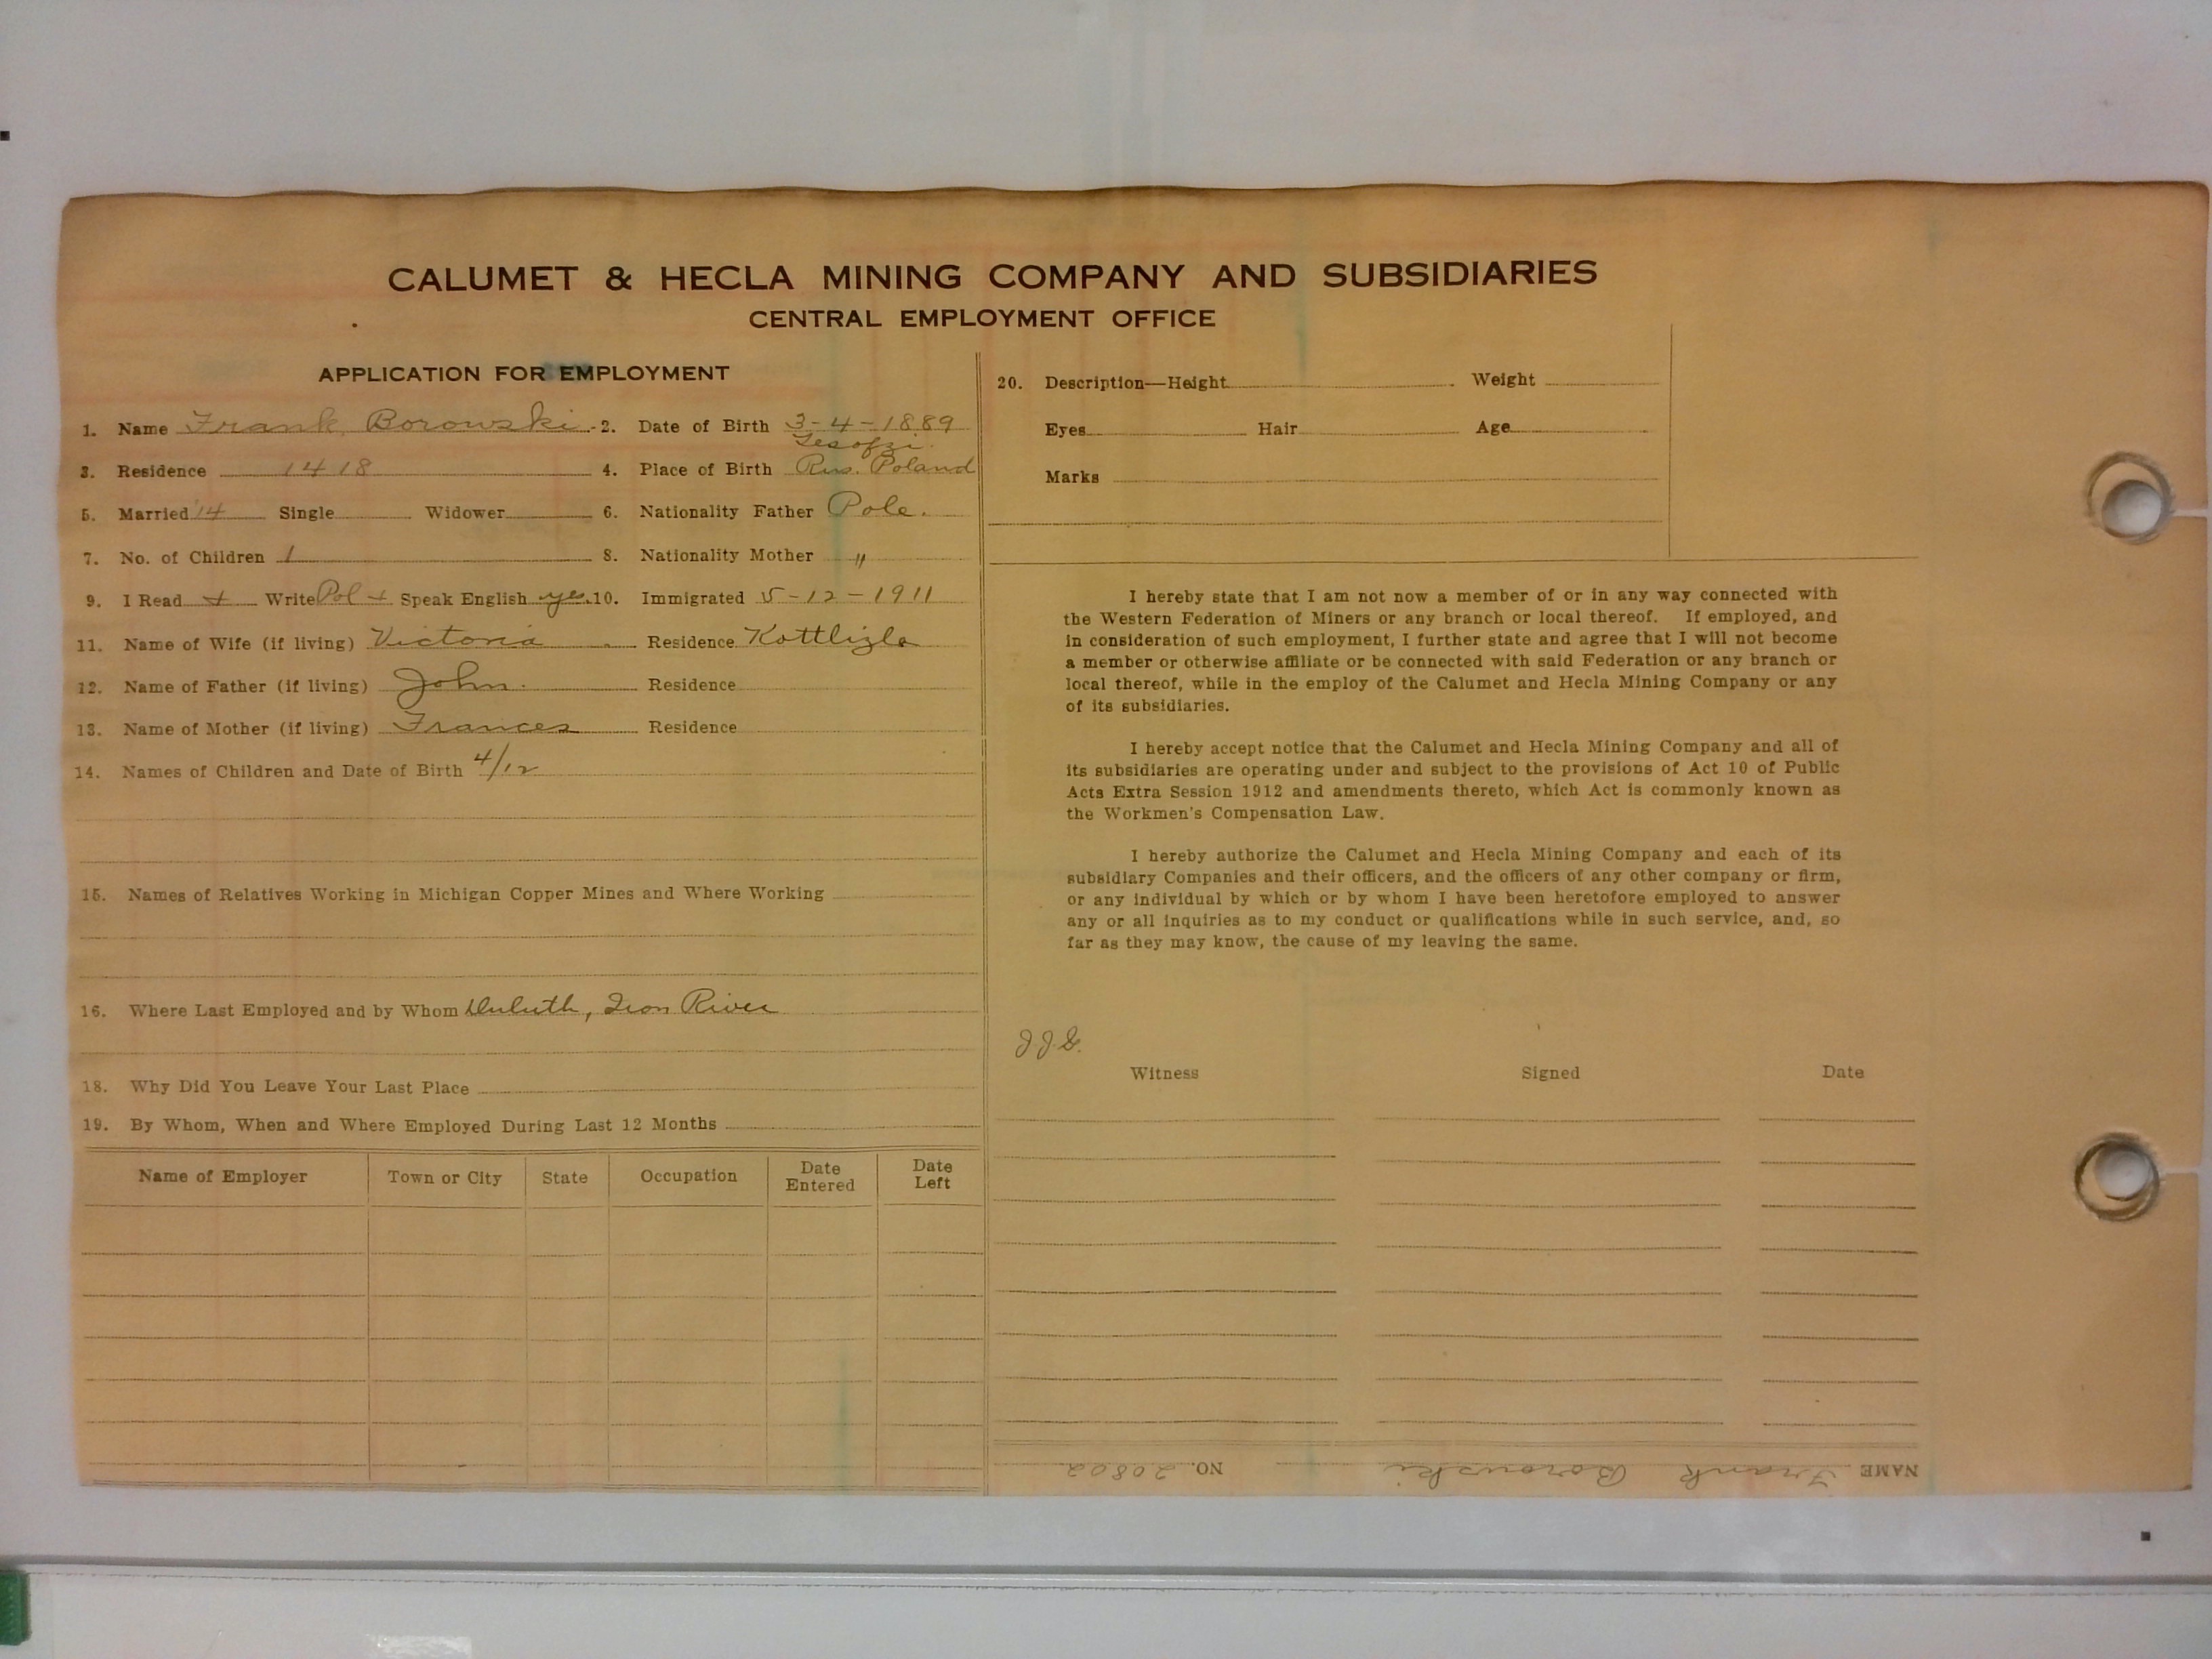 CALUMET & HECLA MINING COMPANY AND SUBSIDIARIES
CENTRAL EMPLOYMENT OFFICE
APPLICATION FOR EMPLOYMENT
1. Name Frank Borowski 2. Date of Birth 3-4-1889
3. Residence 1418 4. Place of Birth Rus. Poland
5. Married '14 Single Widower 6. Nationality Father Pole.
7. No. of Children 1 8. Nationality Mother "
9. I Read + Write Pol + Speak English yes 10. Immigrated 5-12-1911
11. Name of Wife (if living) Victoria Residence
12. Name of Father (if living) John. Residence
13. Name of Mother (if living) Frances Residence
14. Names of Children and Date of Birth 4/12
15. Names of Relatives Working in Michigan Copper Mines and Where Working
16. Where Last Employed and by Whom Duluth, Iron River
18. Why Did You Leave Your Last Place
19. By Whom, When and Where Employed During Last 12 Months
Name of Employer Town or City State Occupation Date Entered Date Left
20. Description—Height Weight
Eyes Hair Age
Marks
I hereby state that I am not now a member of or in any way connected with
the Western Federation of Miners or any branch or local thereof. If employed, and
in consideration of such employment, I further state and agree that I will not become
a member or otherwise affiliate or be connected with said Federation or any branch or
local thereof, while in the employ of the Calumet and Hecla Mining Company or any
of its subsidiaries.
I hereby accept notice that the Calumet and Hecla Mining Company and all of
its subsidiaries are operating under and subject to the provisions of Act 10 of Public
Acts Extra Session 1912 and amendments thereto, which Act is commonly known as
the Workmen's Compensation Law.
I hereby authorize the Calumet and Hecla Mining Company and each of its
subsidiary Companies and their officers, and the officers of any other company or firm,
or any individual by which or by whom I have been heretofore employed to answer
any or all inquiries as to my conduct or qualifications while in such service, and, so
far as they may know, the cause of my leaving the same.
Witness Signed Date
NAME Frank Borowski NO. 20802